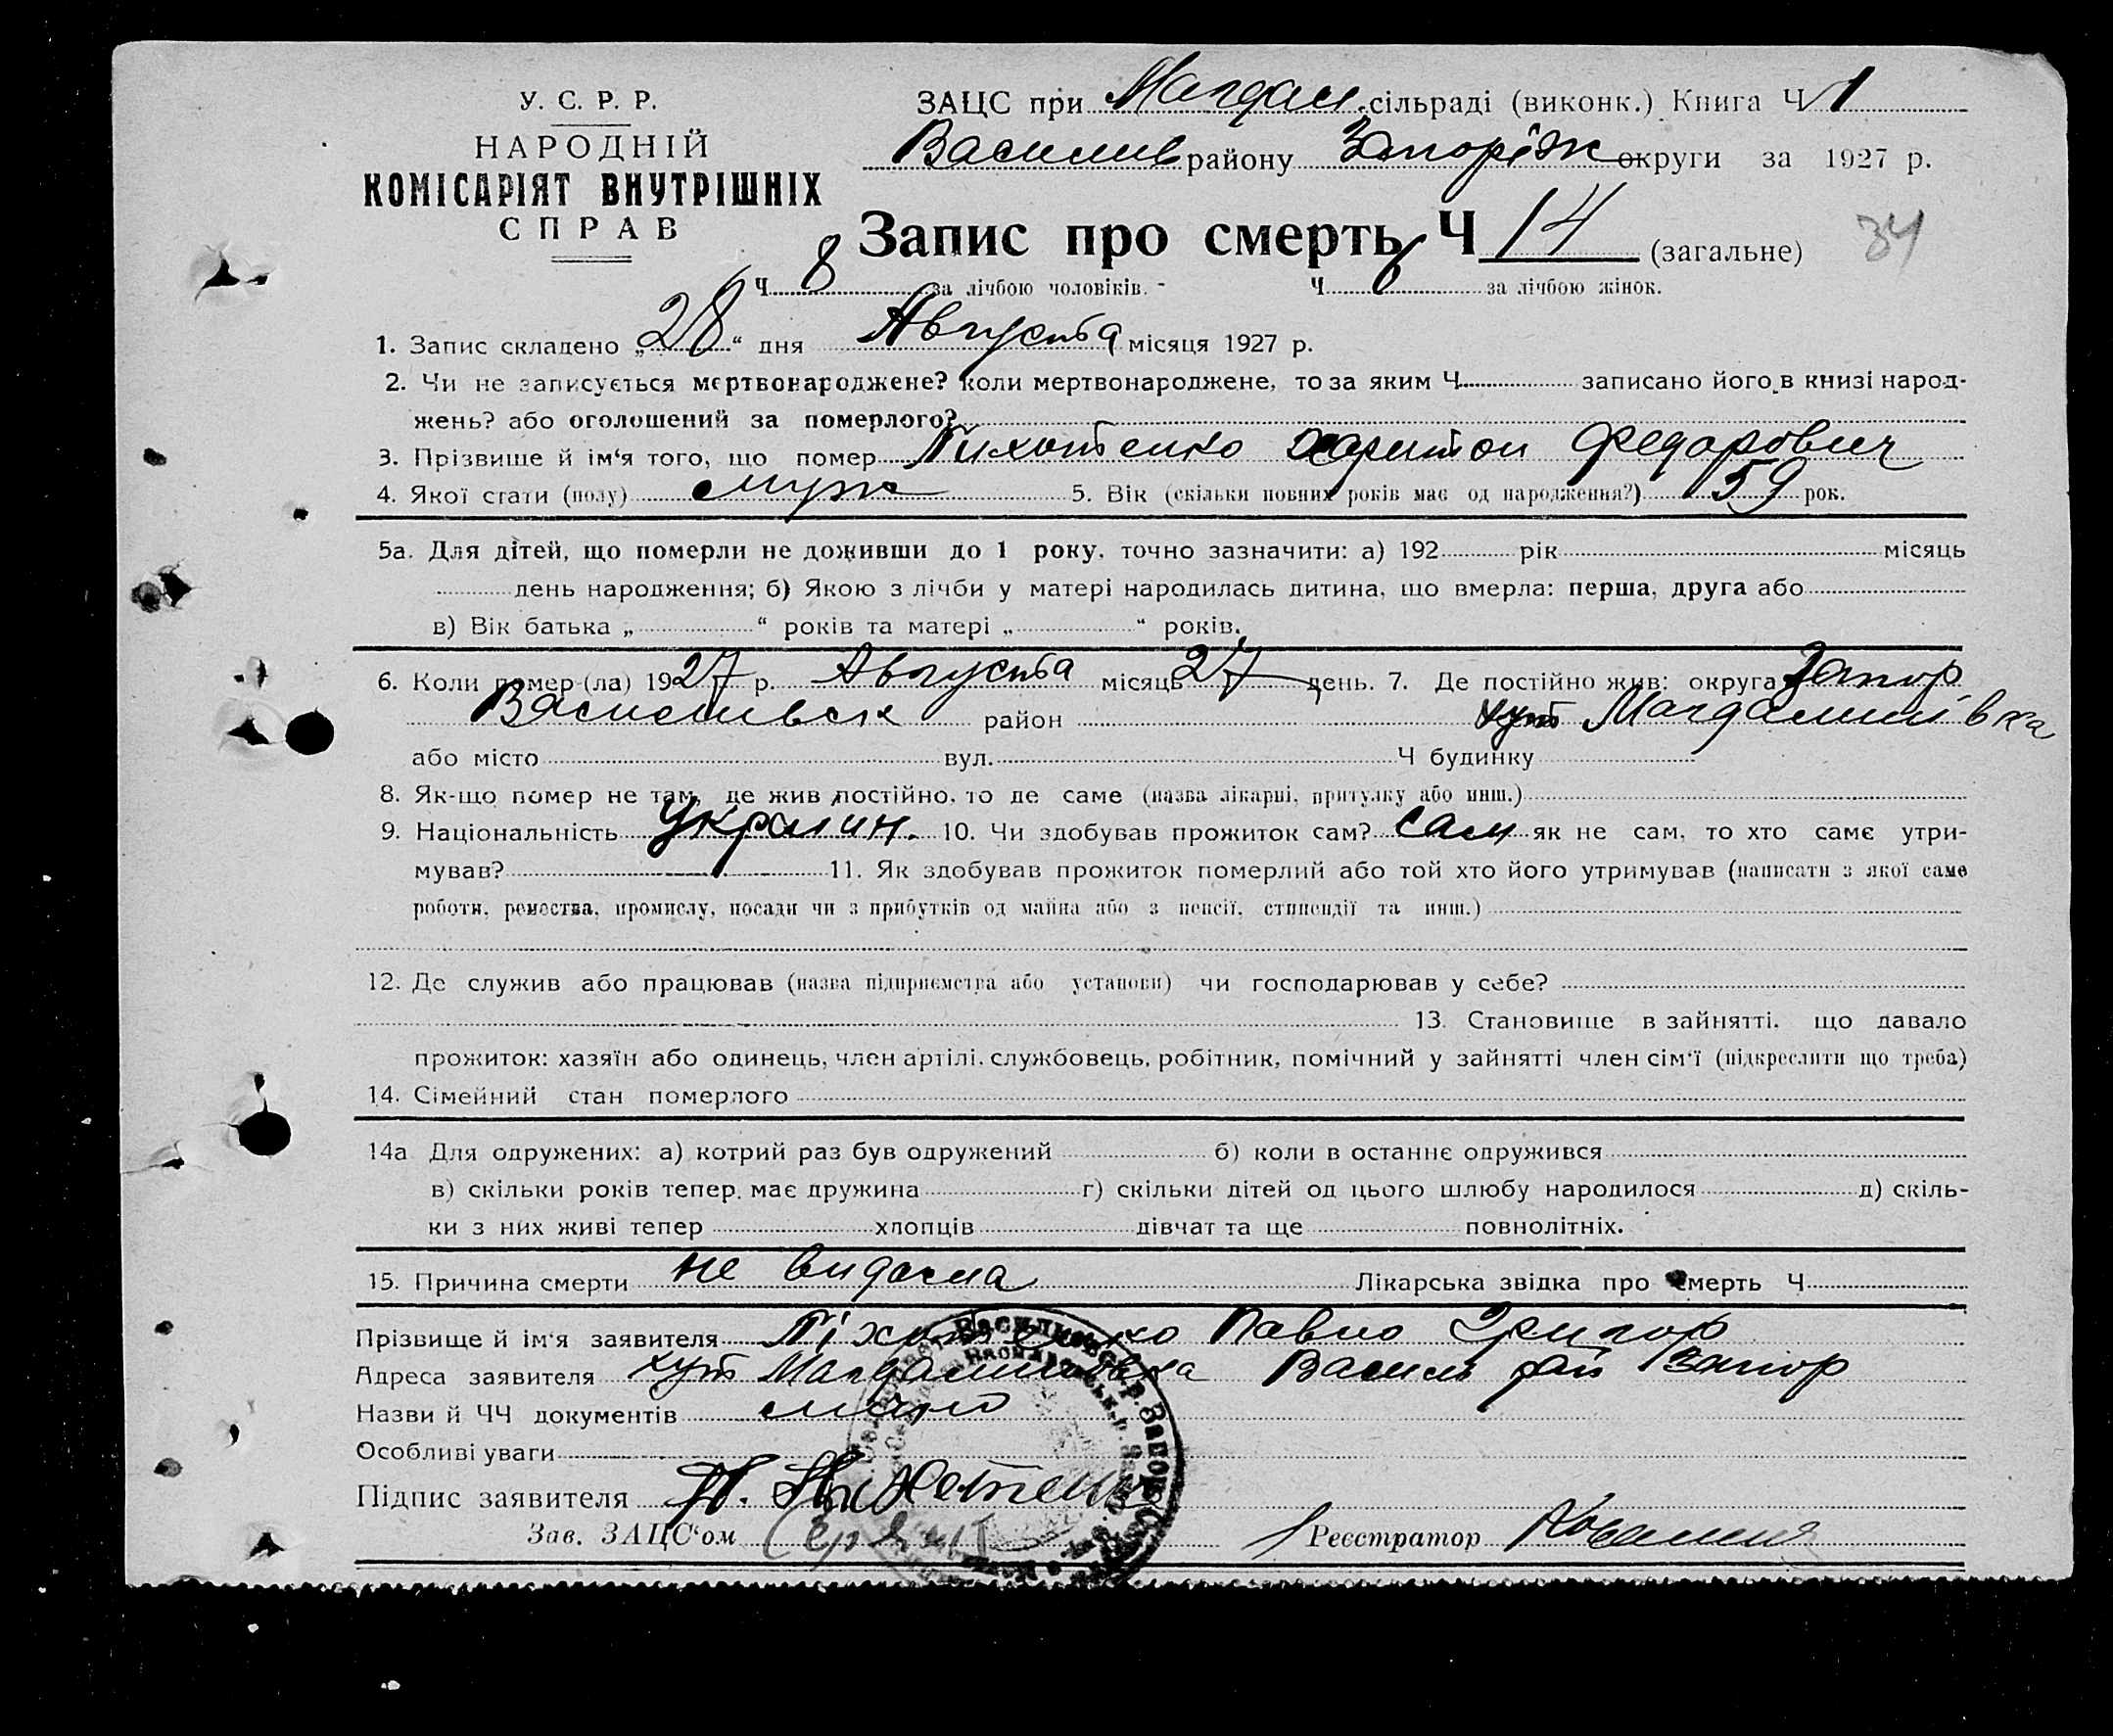 У. С. Р. Р.
НАРОДНІЙ
КОМІСАРІЯТ ВНУТРІШНІХ
СПРАВ
ЗАЦС при Магдал. сільраді (виконк.) Книга Ч 1
Василив району Запоріж округи за 1927 р.
Запис про смерть Ч 14 (загальне)
34
Ч 8 за лічбою чоловіків. - Ч 6 за лічбою жінок.
1. Запис складено „28“ дня Августа місяця 1927 р.
2. Чи не записується мертвонароджене? коли мертвонароджене, то за яким Ч. записано його в книзі народ-
жень? або оголошений за померлого?
3. Прізвище й ім‘я того, що помер Харитон Федорович
4. Якої стати (полу) муж 5. Вік (скільки повних років має од народження?) 59 рок.
5а. Для дітей, що померли не доживши до 1 року, точно зазначити: а) 192 рік місяць
день народження; б) Якою з лічби у матері народилась дитина, що вмерла: перша, друга або
в) Вік батька „ “ років та матері „ “ років.
6. Коли помер-(ла) 1927 р. Августа місяць 27 день. 7. Де постійно жив: округа Запор
Василивськ район хут Магдалинівка
або місто вул. Ч будинку
8. Як-що помер не там, де жив постійно, то де саме (назва лікарні, притулку або инш.)
9. Національність Украин. 10. Чи здобував прожиток сам? Сам як не сам, то хто саме утри-
мував? 11. Як здобував прожиток померлий або той хто його утримував (написати з якої саме
роботи, ремества, промислу, посади чи з прибутків од майна або з пенсії, стипендії та инш.)
12. Де служив або працював (назва підприємства або установи) чи господарював у себе?
13. Становище в зайнятті, що давало
прожиток: хазяїн або одинець, член артілі, службовець, робітник, помічний у зайнятті член сім‘ї (підкреслити що треба)
14. Сімейний стан померлого
14а Для одружених: а) котрий раз був одружений б) коли в останнє одружився
в) скільки років тепер має дружина г) скільки дітей од цього шлюбу народилося д) скіль-
ки з них живі тепер хлопців дівчат та ще повнолітніх.
15. Причина смерти не видома Лікарська звідка про смерть Ч
Прізвище й ім‘я заявителя Павло Григор
Адреса заявителя хут Магдалинівка Васил рай Запор
Назви й ЧЧ документів
Особливі уваги
Підпис заявителя
Зав. ЗАЦС‘ом Реєстратор